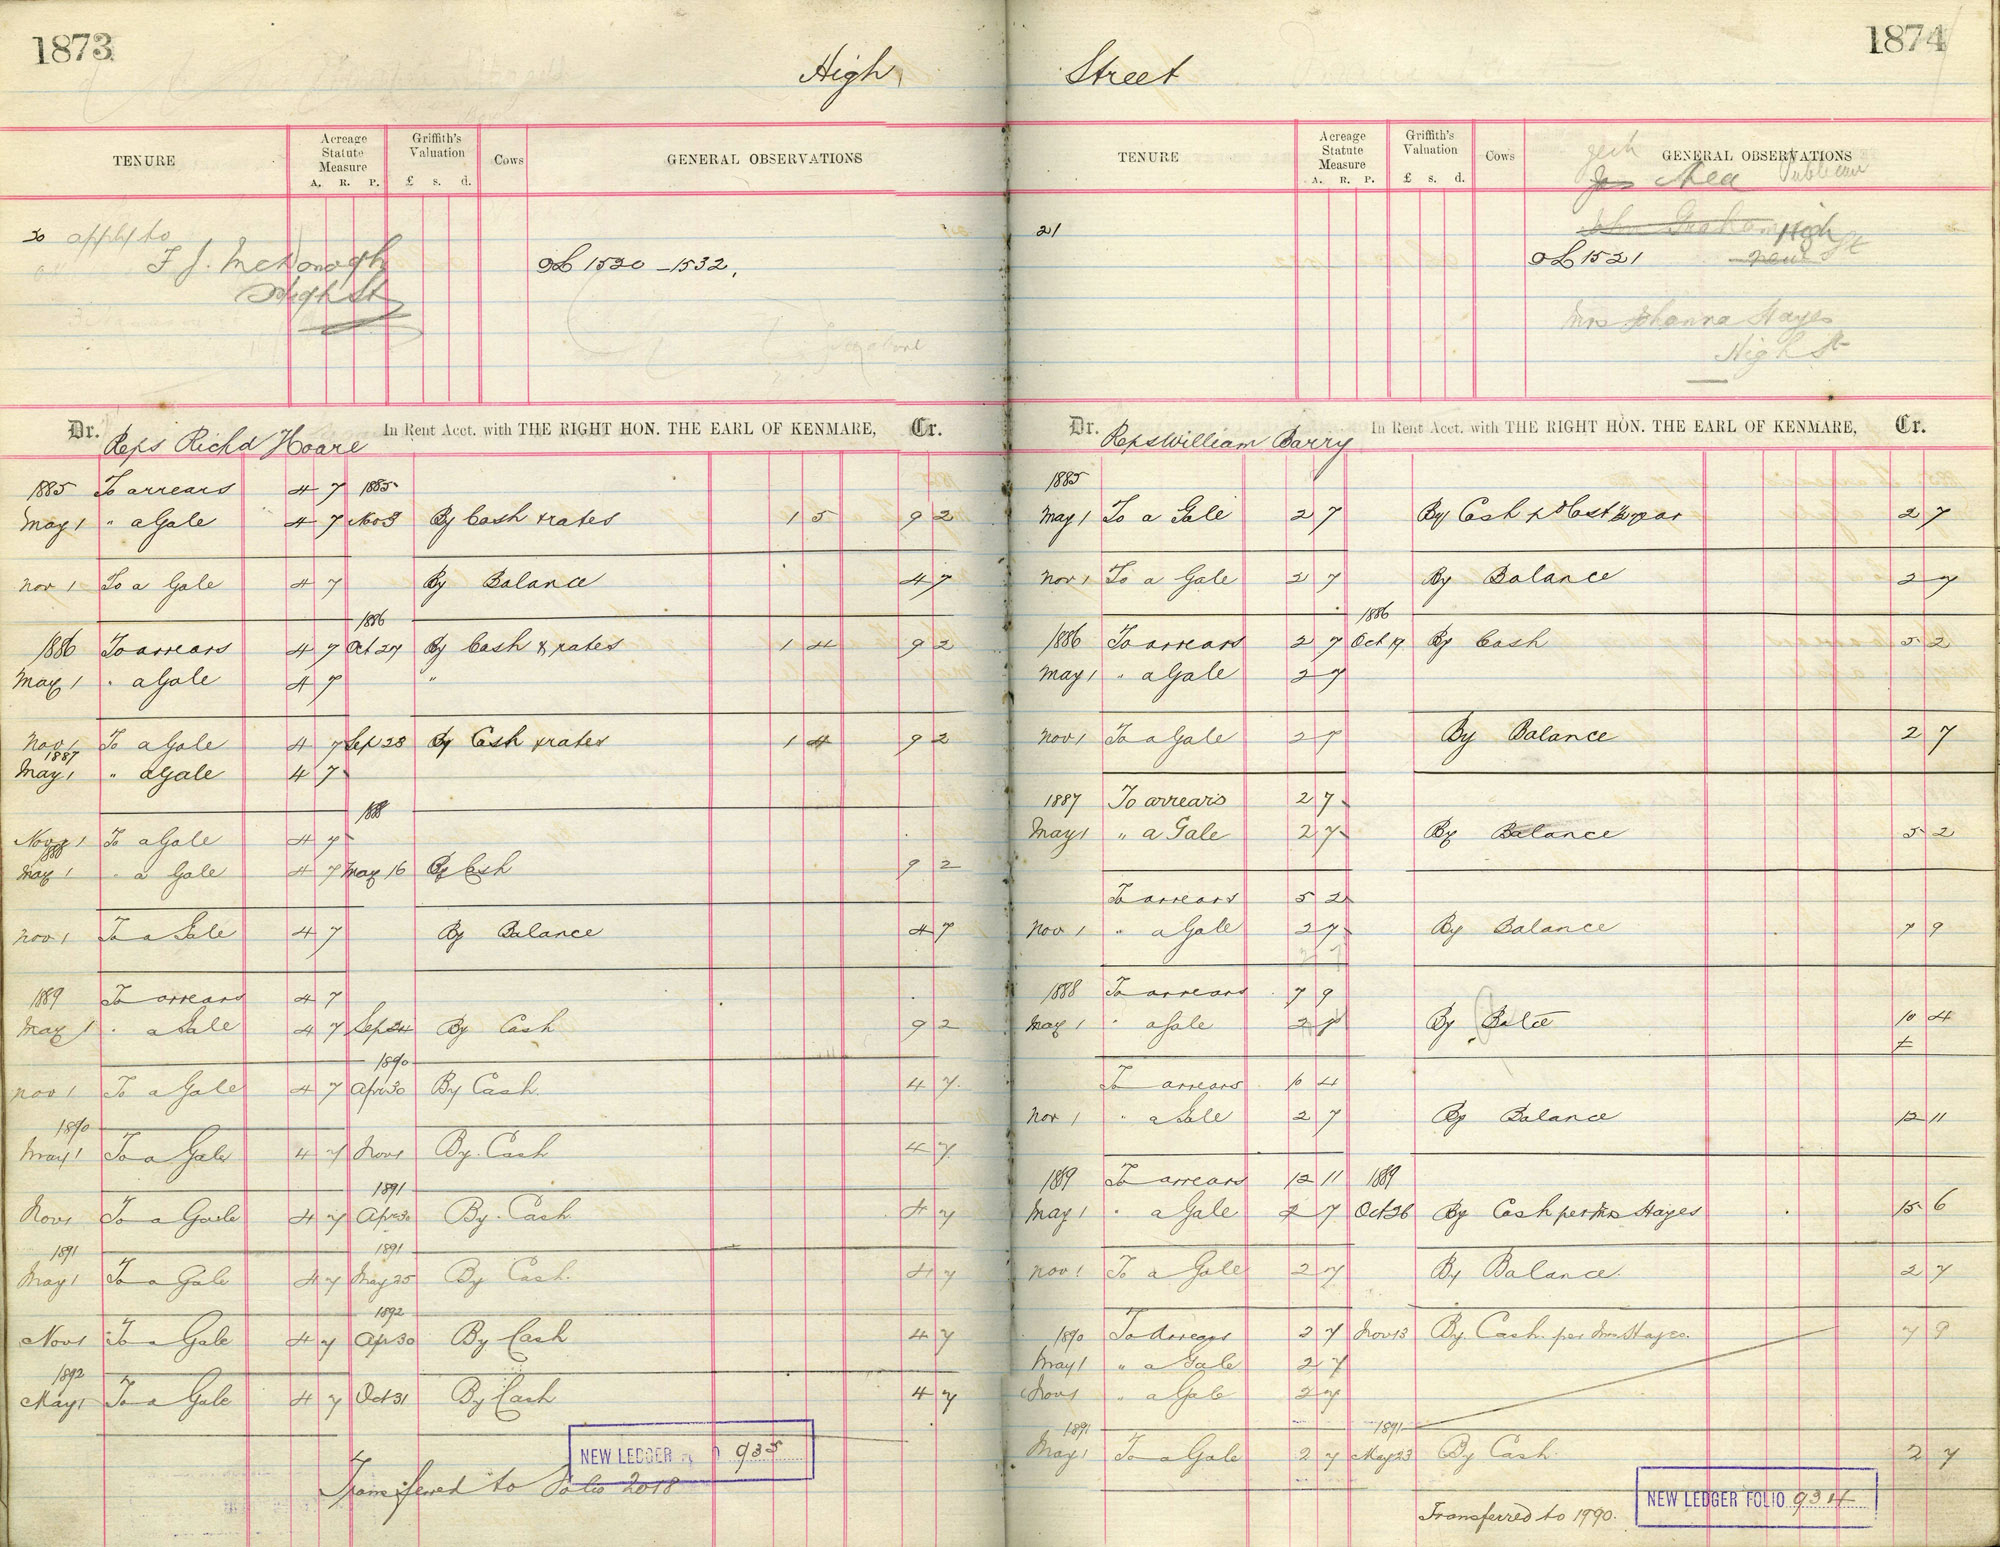 1873
High
TENURE
Acreage Statute Measure
A. R. P.
Griffith's Valuation
£ s. d.
Cows
GENERAL OBSERVATIONS
20 apply to
F J. McDonogh
High St
OL 1520 - 1532.
Dr. Reps Richd Hoare In Rent Acct. with THE RIGHT HON. THE EARL OF KENMARE, Cr.
1885 To arrears 4 7 1885
May 1 " a Gale 4 7 Nov 3 By Cash & rates 1 5 9 2
Nov 1 To a Gale 4 7 By Balance 4 7
1886
1886 To arrears 4 7 Oct 27 By Cash & rates 1 4 9 2
May 1 " a Gale 4 7 "
Nov 1 To a Gale 4 7 Sep 28 By Cash & rates 1 4 9 2
1887
May 1 " a Gale 4 7
1888
Nov 1 To a Gale 4 7
1888
May 1 " a Gale 4 7 May 16 By Cash 9 2
Nov 1 To a Gale 4 7 By Balance 4 7
1889 To arrears 4 7
May 1 " a Gale 4 7 Sep 24 By Cash 9 2
1890
Nov 1 To a Gale 4 7 Apr 30 By Cash. 4 7.
1890
May 1 To a Gale 4 7 Nov 1 By. Cash 4 7
1891
Nov 1 To a Gale 4 7 Apr 30 By. Cash 4 7
1891 1891
May 1 To a Gale 4 7 May 25 By Cash. 4 7
1892
Nov 1 To a Gale 4 7 Apr 30 By Cash 4 7
1892
May 1 To a Gale 4 7 Oct 31 By Cash 4 7
NEW LEDGER 935
Transferred to Folio 2018
1874
Street
TENURE
Acreage Statute Measure
A. R. P.
Griffith's Valuation
£ s. d.
Cows
GENERAL OBSERVATIONS
Publican
21
John Graham High
OL 1521 New St
Mrs Johanna Hayes
High St
Dr. Reps William Barry In Rent Acct. with THE RIGHT HON. THE EARL OF KENMARE, Cr.
1885
May 1 To a Gale 2 7 By Cash & Cost 2 7
Nov 1 To a Gale 2 7 By Balance 2 7
1886
1886 To arrears 2 7 Oct 19 By Cash 5 2
May 1 " a Gale 2 7
Nov 1 To a Gale 2 7 By Balance 2 7
1887 To arrears 2 7
May 1 " a Gale 2 7 By Balance 5 2
To arrears 5 2
Nov 1 " a Gale 2 7 By Balance 7 9
1888 To arrears 7 9
May 1 " a Gale 2 7 By Balce 10 4
To arrears 10 4
Nov 1 " a Gale 2 7 By Balance 12 11
1889 To arrears 12 11 1889
May 1 " a Gale 2 7 Oct 26 By Cash per Mrs Hayes 15 6
Nov 1 To a Gale 2 7 By Balance. 2 7
1890 To Arrears 2 7 Nov 13 By Cash per Mrs Hayes. 7 9
May 1 " a Gale 2 7
Nov 1 " a Gale 2 7
1891 1891
May 1 To a Gale 2 7 May 23 By Cash 2 7
NEW LEDGER FOLIO 934
Transferred to 1990.